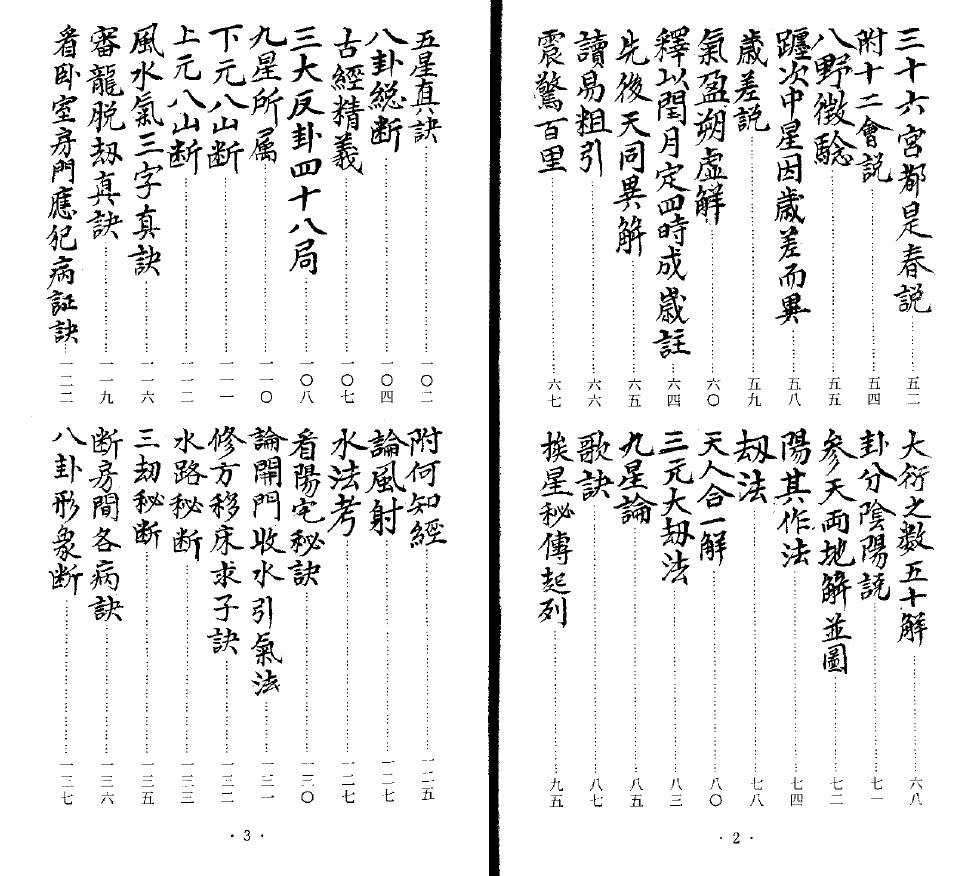 三十六宮都是春説……五二
附十二會説……五四
八野徴騐……五五
躔次中星因歲差而異……五八
歲差説……五九
氣盈朔虛解……六〇
釋以閏月定四時成歲註……六四
先後天同異解……六五
讀易粗引……六六
震驚百里……六七
大衍之数五十解……六八
卦分陰陽説……七一
參天両地解並圖……七二
陽基作法……七四
劫法……七八
天人合一解……八〇
三元大劫法……八三
九星論……八五
歌訣……八七
挨星秘傳起列……九五
·2·
五星真訣……一〇二
八卦総断……一〇四
古經精義……一〇七
三大反卦四十八局……一〇八
九星所属……一一〇
下元八山断……一一一
上元八山断……一一二
風水氣三字真訣……一一六
審龍脱劫真訣……一一九
看卧室房門應犯病証訣……一二二
附何知經……一二五
論風射……一二七
水法考……一二七
看陽宅秘訣……一三〇
論開門收水引氣法……一三一
修方移床求子訣……一三二
水路秘断……一三三
三劫秘断……一三五
断房間各病訣……一三六
八卦形象断……一三七
·3·